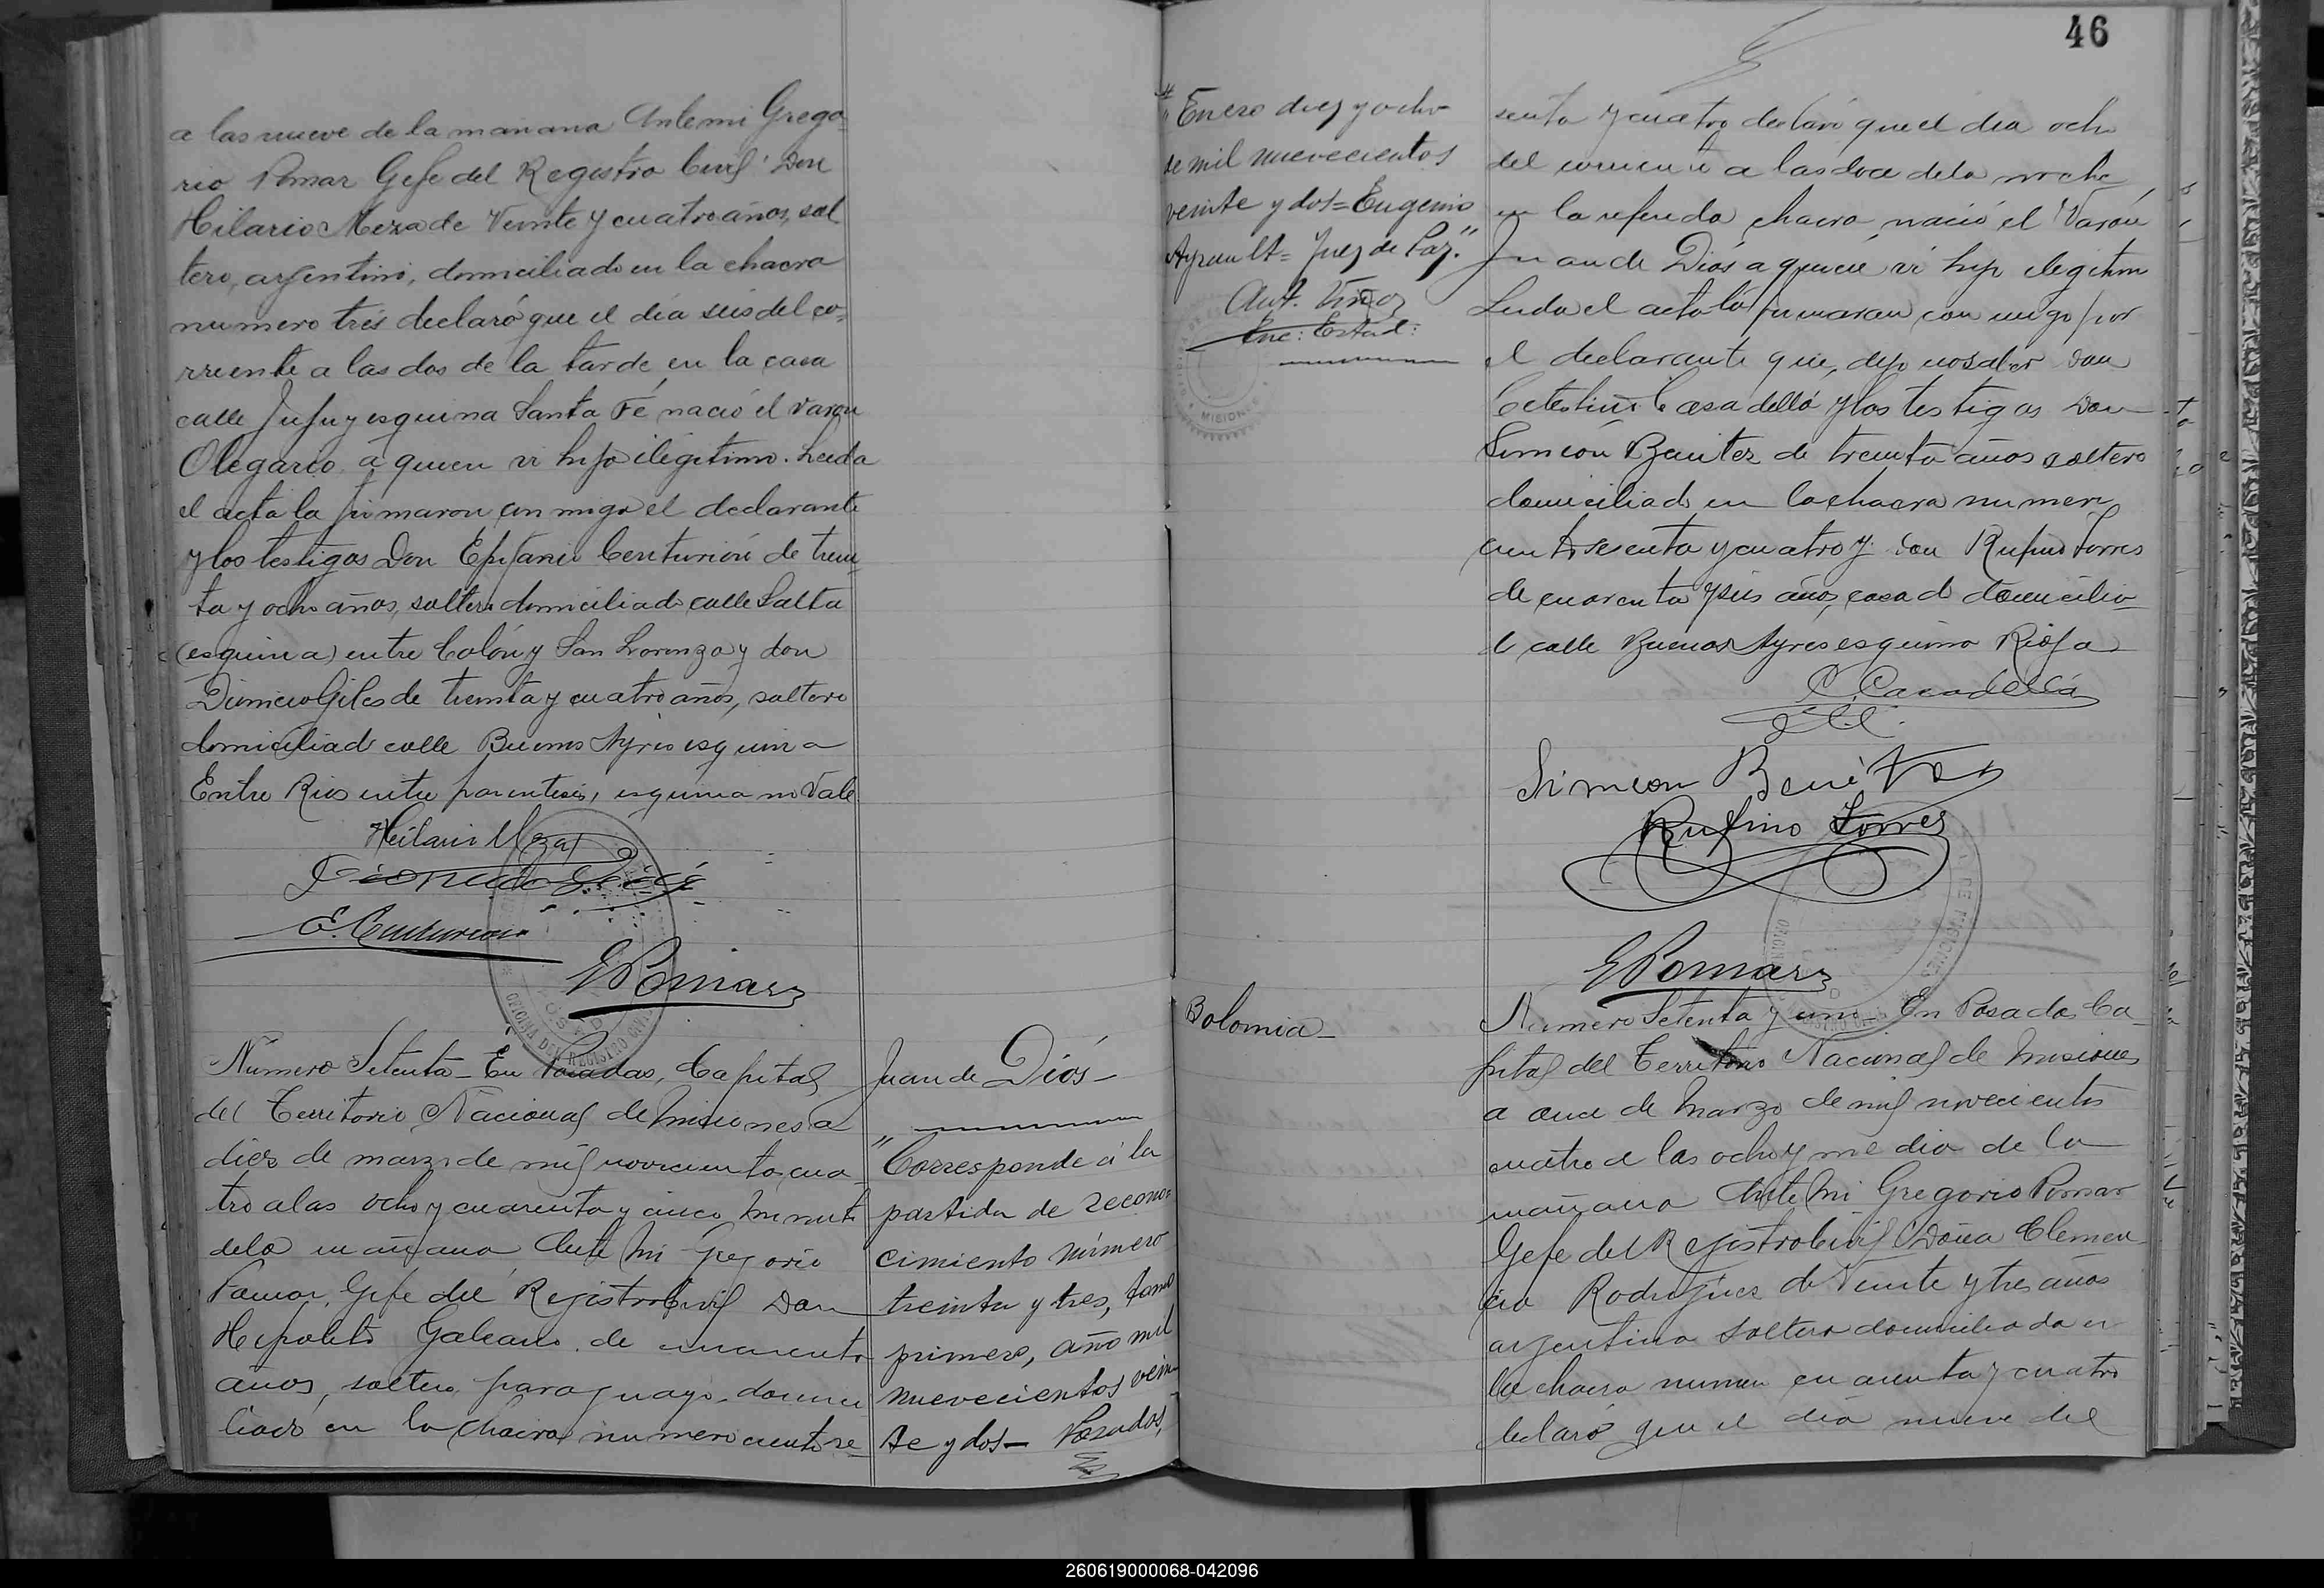 a las nueve de la mañana Ante mi Grego=
rio Pomar Gefe del Registro Civil Don
Hilario Meza de Veinte y cuatro años, sol
tero, argentino, domiciliado en la chacra
numero trés declaró que el día seis del co=
rriente a las dos de la tarde en la casa
calle Jujuy esquina Santa Fé nació el varon
Olegario á quien vi hijo ilegitimo. Leida
el acta la firmaron con migo el declarante
y los testigos Don Epifanio Centurión de trein
ta y ocho años, soltero domiciliado calle Salta
(esquina) entre Colón y San Lorenzo y don
Giles de treinta y cuatro años, soltero
domiciliado calle Buenos Ayres esquina
Entre Rios entre parentesis, esquina no Vale
Hilario Meza
E. Centurion
G Pomar
Número Setenta - En Posadas, Capital
del Territorio Nacional de Misiones a
diez de marzo de mil novecientos cua
tro a las ocho y cuarenta y cinco minutos
de la mañana Ante Mi Gregorio
Pomar, Gefe del Registro Civil Don
Hipolito Galeano de cuarenta
años, soltero paraguayo, domici
liado en la chacra numero ciento se=
Juan de Diós-
"Corresponde á la
partida de recono=
cimiento número
treinta y tres, tomo
primero, año mil
nuevecientos vein
te y dos- Posadas,
46
"Enero diez y ocho
de mil nuevecientos
veinte y dos=Eugenio
Ayrault= Juez de Paz."
Enc: Estad:
senta y cuatro declaró que el dia ocho
del corriente a las doce de la noche
en la referida chacra nació el Varón
Juan de Diós a quien vi hijo ilegitimo
Leida el acta la firmaron con migo por
el declarante que, dijo no saber don
Celestino Casadellá y los testigos Don
Simeón Benitez de treinta años soltero
domiciliado en la chacra numero
ciento sesenta y cuatro y don Rufino Torres
de cuarenta y seis años, casado domicilia
do calle Buenos Ayres esquina Rioja
C. Casadellá
Simeon Benitez
Rufino Torres
G Pomar
Bolomia-
Numero Setenta y uno - En Posadas Ca-
pital del Territorio Nacional de Misiones
a once de Marzo de mil novecientos
cuatro a las ocho y media de la
mañana Ante Mi Gregorio Pomar
Gefe del Registro Civil Doña Clemen
cia Rodriguez de Veinte y tres años
argentina soltera domiciliada en
la chacra numero cuarenta y cuatro
declaró que el dia nueve del
260619000068-042096